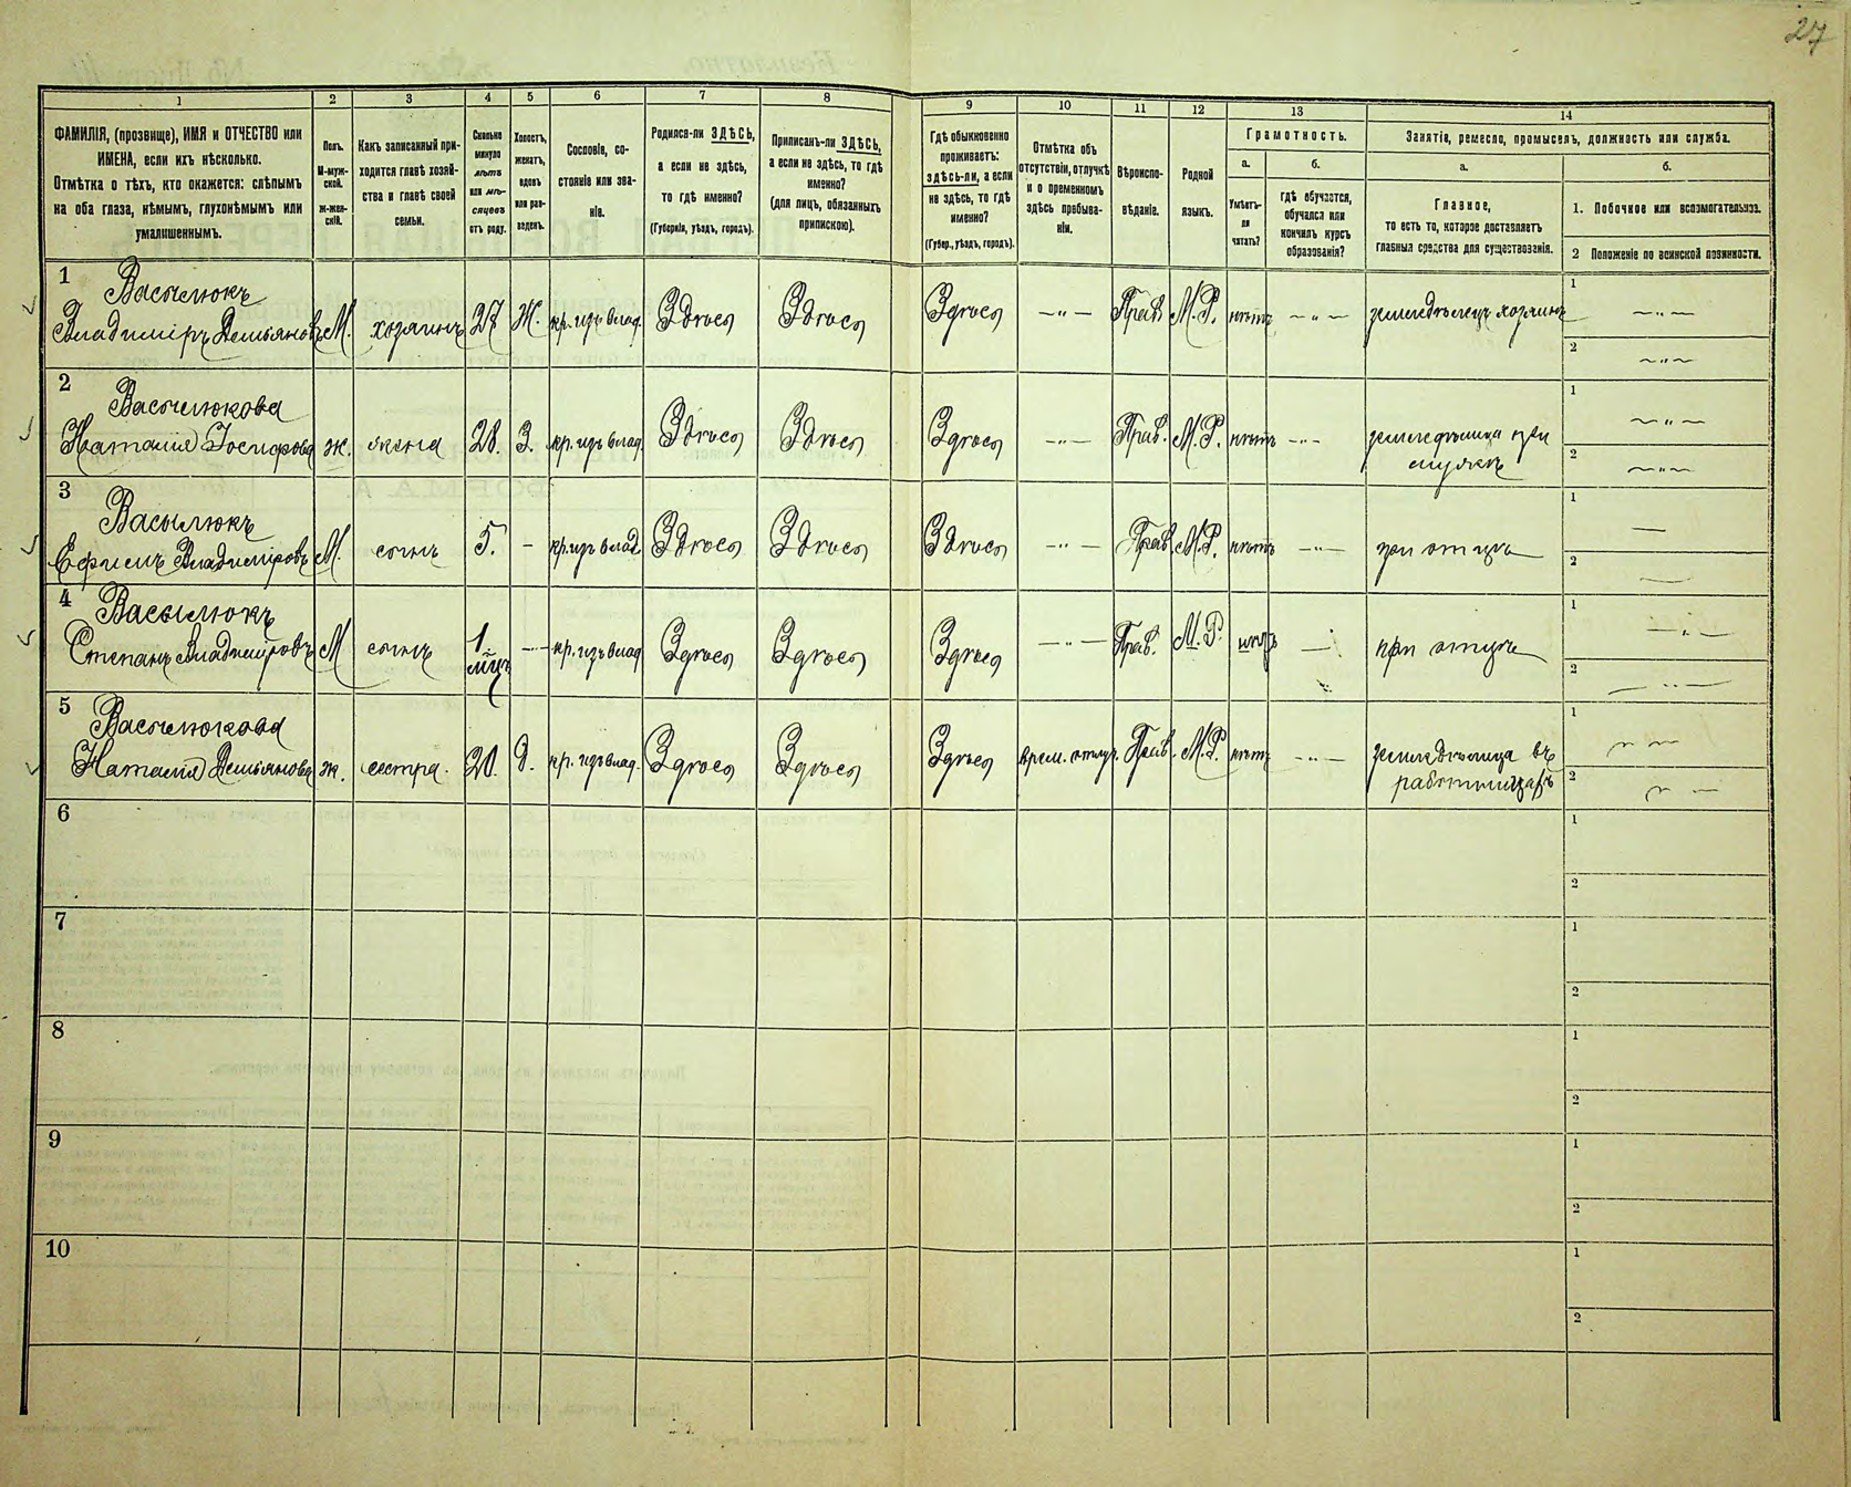 27
1 2 3 4 5 6 7 8 9 10 11 12 13 14
ФАМИЛІЯ, (прозвище), ИМЯ и ОТЧЕСТВО или
ИМЕНА, если ихъ нѣсколько.
Отмѣтка о тѣхъ, кто окажется: слѣпымъ
на оба глаза, нѣмымъ, глухонѣмымъ или
умалишеннымъ.
Полъ.
М-муж-
ской.
ж-жен-
скій.
Какъ записанный при-
ходится главѣ хозяй-
ства и главѣ своей
семьи.
Сколько
минуло
лѣтъ
или мѣ-
сяцевъ
отъ роду.
Холостъ,
женатъ,
вдовъ
или раз-
веденъ.
Сословіе, со-
стояніе или зва-
ніе.
Родился-ли ЗДѢСЬ,
а если не здѣсь,
то гдѣ именно?
(Губернія, уѣздъ, городъ).
Приписанъ-ли ЗДѢСЬ,
а если не здѣсь, то гдѣ
именно?
(для лицъ, обязанныхъ
припискою).
Гдѣ обыкновенно
проживаетъ:
здѣсь-ли, а если
не здѣсь, то гдѣ
именно?
(Губер., уѣздъ, городъ).
Отмѣтка объ
отсутствіи, отлучкѣ
и о временномъ
здѣсь пребыва-
ніи.
Вѣроиспо-
вѣданіе.
Родной
языкъ.
Грамотность.
а. б.
Умѣетъ-
ли
читать?
гдѣ обучается,
обучался или
кончилъ курсъ
образованія?
Занятіе, ремесло, промыселъ, должность или служба.
а. б.
Главное,
то есть то, которое доставляетъ
главныя средства для существованія.
1. Побочное или вспомогательное.
2 Положеніе по воинской повинности.
1 Васылюкъ 1
Владиміръ Демьяновъ М. хозяинъ 27 Ж. кр. изъ влад. Здѣсь Здѣсь Здѣсь -„- Прав. М.Р. нѣтъ -„- земледѣлецъ хозяинъ -„-
2 -„-
2 Васылюкова 1
Наталія Іосифова ж. жена 28. З. кр. изъ влад. Здѣсь Здѣсь Здѣсь -„- Прав. М.Р. нѣтъ -„- земледѣлица при -„-
мужѣ 2 -„-
3 Васылюкъ 1
Ефимъ Владиміровъ М. сынъ 5. - кр. изъ влад. Здѣсь Здѣсь Здѣсь -„- Прав. М.Р. нѣтъ -„- при отцѣ —
2 —
4 Васылюкъ 1
Степанъ Владиміровъ М сынъ 1 — кр. изъ влад Здѣсь Здѣсь Здѣсь -„- Прав. М.Р. нѣтъ — при отцѣ -„-
мѣц. 2 -„-
5 Васылюкова 1
Наталія Демьянова ж. сестра. 20. д. кр. изъ влад. Здѣсь Здѣсь Здѣсь врем. отлуч. Прав. М.Р. нѣтъ -„- земледѣлица въ -„-
работницахъ 2 -„-
6 1
2
7 1
2
8 1
2
9 1
2
10 1
2